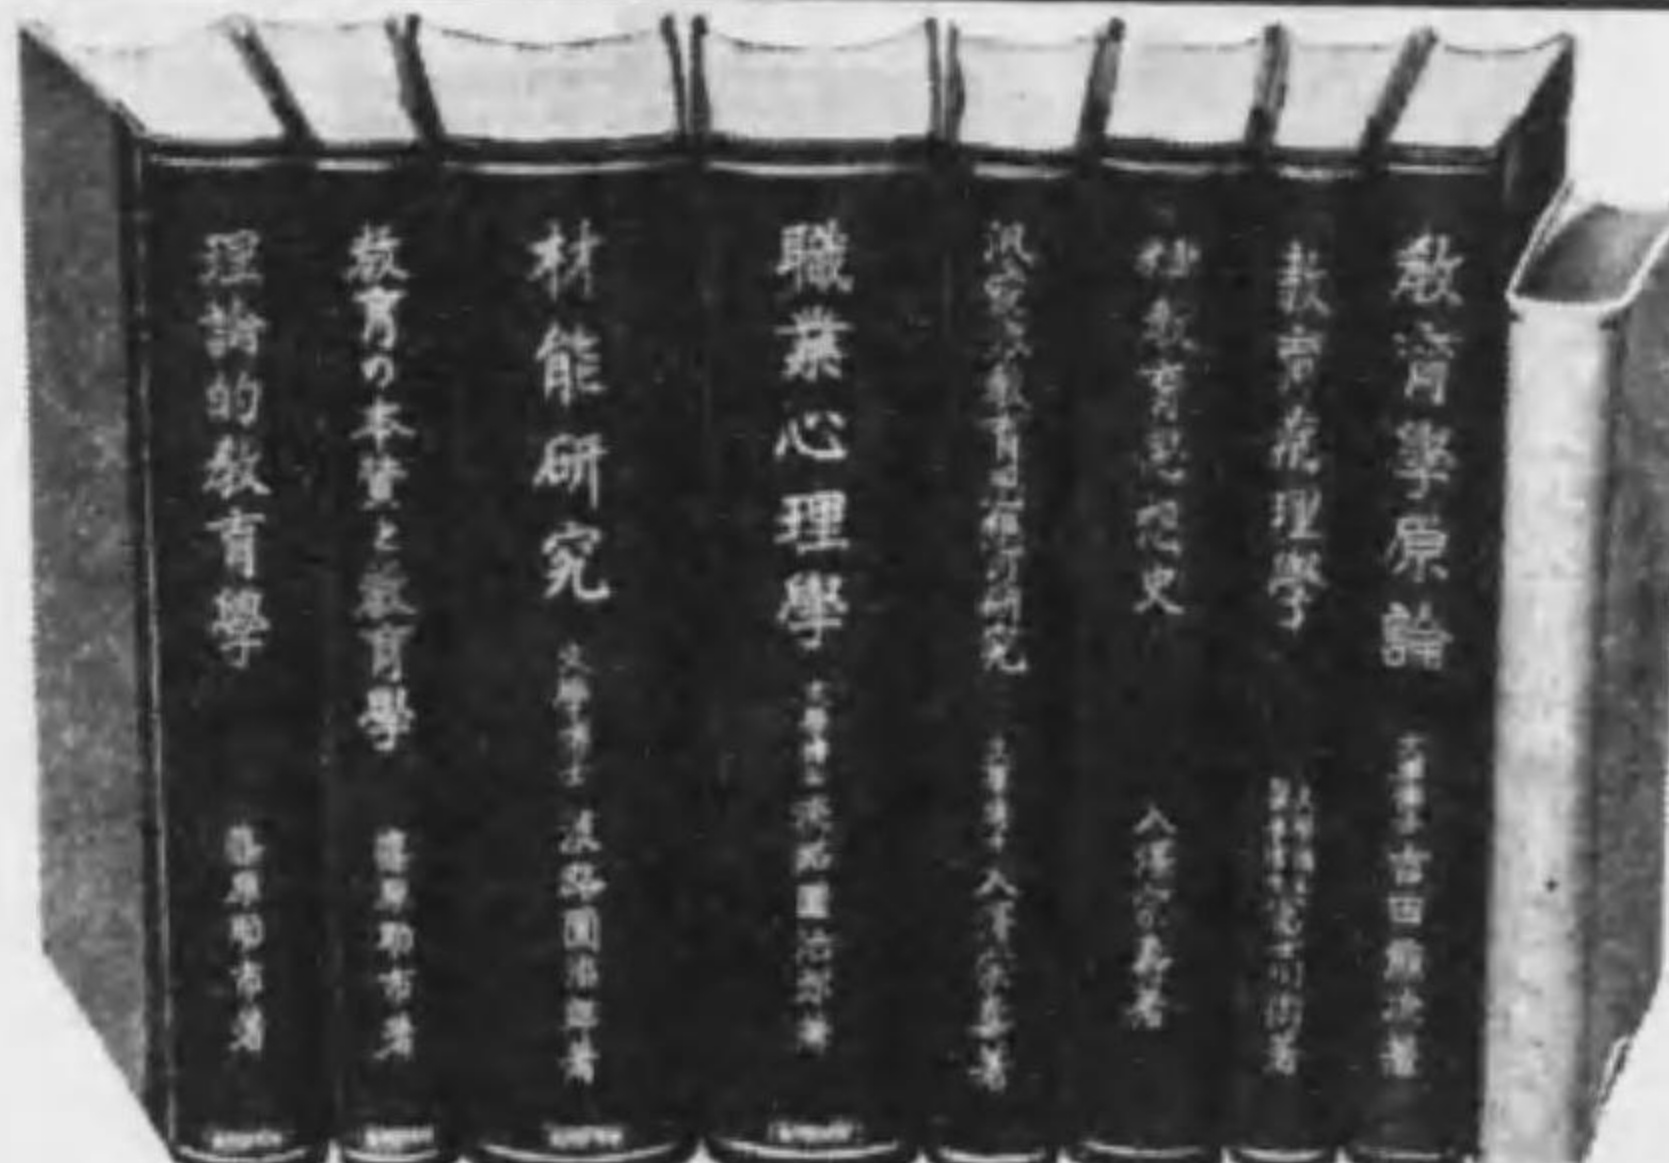 教育學原論 文學博士 吉田熊次著
教育病理學
教育思想史 入澤宗壽著
教育 研究 文學博士 入澤宗壽著
職業心理學 文學博士 淡路圓治郎著
材能研究 文學博士 淡路圓治郎著
教育の本質と教育學 篠原助市著
理論的教育學 篠原助市著